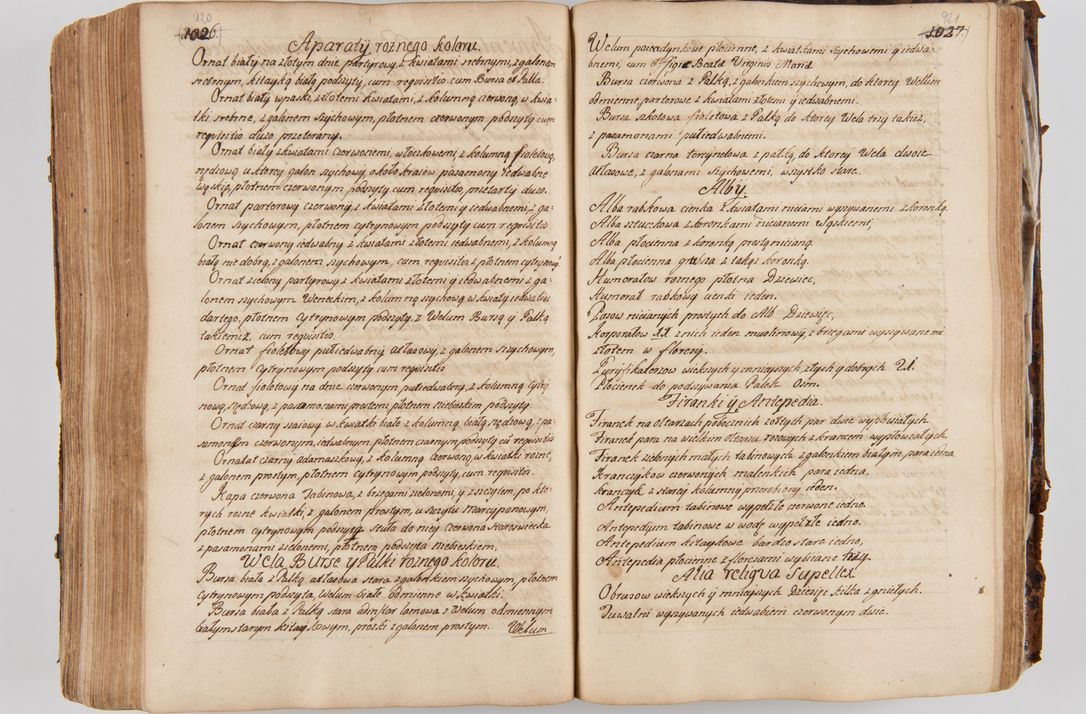 920
1026
Aparaty roznego koloru.
Ornat biały na złotym dnie partyrowy, z kwiatami srebrnymi, z galonem
srebrnym, kitayką białą podszyty, cum requisitis cum Bursa et Palla.
Ornat biały w paski, z złotemi kwiatami, z kolumną czerwoną, w kwia-
tki srebne, z galonem szychowym, płotnem czerwonym podszyty cum
requisitis duzo przetarany.
Ornat biały z kwiatami czerwonemi, włoczkowemi, z kolumną fioletową,
rzędzową, u ktorey galon szychowy, około kraiow pasamony iedwabne
wąskie, płotnem czerwonym podszyty cum requisitis, przetarty duzo.
Ornat parterowy czerwony, z kwiatami złotemi y iedwabnemi, z ga-
lonem szychowym, płotnem cytrynowym podszyty cum requisitis
Ornat czerwony iedwabny z kwiatami złotemi iedwabnemi, z kolumną
białą nie dobrą, z galonem szychowym, cum requisitis, z płotnem cytrynowy
Ornat zielony partyrowy z kwiatami złotemi y iedwabnemi z ga-
lonem szychowym Weneckim, z kolumną szychową w kwiaty iedwabiu
dartego, płotnem cytrynowym podszyty, z Welum Bursą y Palką
takiemiz, cum requisitis.
Ornat fioletowy pułiedwabny atłasowy, z galonem szychowym,
płotnem cytrynowym podszyty cum requisitis
Ornat fioletowy na dnie czerwonym, pułiedwabny, z kolumną cytry
nową, rzędzową, z pasamonami prostemi, płotnem niebieskim podszyty
Ornat czarny szaiowy w kwiatki białe z kolumną białą, rzędzową, z pa-
samonem czerwonym, iedwabnym, płotnem czarnym podszyty cu requisitis
Ornat czarny adamaszkowy, z kolumną czerwoną, w kwiatki rozne,
z galonem prostym, płotnem cytrynowym podszyty, cum requisitis.
Kapa czerwona Tabinowa, z brzegami zielonemi, y szczytem, po kto-
rych rozne kwiatki, z galonem prostym, u szczytu Marcypanowym,
płotnem cytrynowym podszyta, stuła do niey czerwona staroswiecka
z pasamonami zielonemi, płotnem podszyta niebieskiem,
Wela Burse y Palki roznego koloru.
Bursa biała z Palką atłasowa stara z galonkiem szychowym, płotnem
cytrynowym podszyta, Welum białe odmienne w kwiatki.
Bursa biała z Palką stara lamowa z Welum odmiennym
białym starym kitaykowym, prązki z galonem prostym. Welum
921
1027
Welum poiedynkowe płocienne, z kwiatkami szychowemi y iedwa-
bnemi, cum Effigie Beatæ Virginis Mariæ
Bursa czerwona z Palką, z galonkiem szychowym, do ktorey Welum
odmienne, parterowe z kwiatami złotemi y iedwabnemi.
Bursa fioletowa z Palką do ktorey Wela trzy takiez,
z pasamonami pułiedwabnemi.
Bursa czarna tercynelowa z palką, do ktorey Wela dwoie
atłasowe, z galonami szychowemi, wszystko stare.
Alby.
Alba rabkowa cienka z kwiatami niciami wyszywanemi z koronką.
Alba sztuczkowa z koronkami nicianemi wąskiemi,
Alba płocienna z koronką prostą nicianą.
Alba płocienna grubsza z takąz koronką.
Humerałow roznego płotna Dziewięć,
Humerał rabkowy cienki ieden.
Pasow nicianych prostych do Alb Dziewięc,
Korporałow 11 z nich ieden muslinowy, z brzegami wyszywanemi
złotem w floresy.
Puryfikaterzow większych y mnieyszych, złych y dobrych 21.
Płocienek do podszywania Palek Osm.
Firanki y Antepedia.
Firanek na ołtarzach pobocznych zołtych par dwie wypłowiałych
Firanek para na wielkim ołtarzu rozowych z krancem wypłowiałych
Firanek zielonych małych tabinowych z galonkiem białym, para iedna
Krancykow czerwonych malenkich para iedna.
Krancyk z starey kolumny przerobiony ieden.
Antepedium tabinowe wypełzłe czerwone iedno.
Antepedium tabinowe w wodę wypełzłe iedno.
Antepedium kitaykowe bardzo stare iedno,
Antepedia płocienne z floresami wybiiane trzy.
Alia religva Supellex
Obrusow większych y mnieyszych Dziesięc kilka z gniłych.
Tuwalni wyszywanych iedwabiem czerwonym dwie.